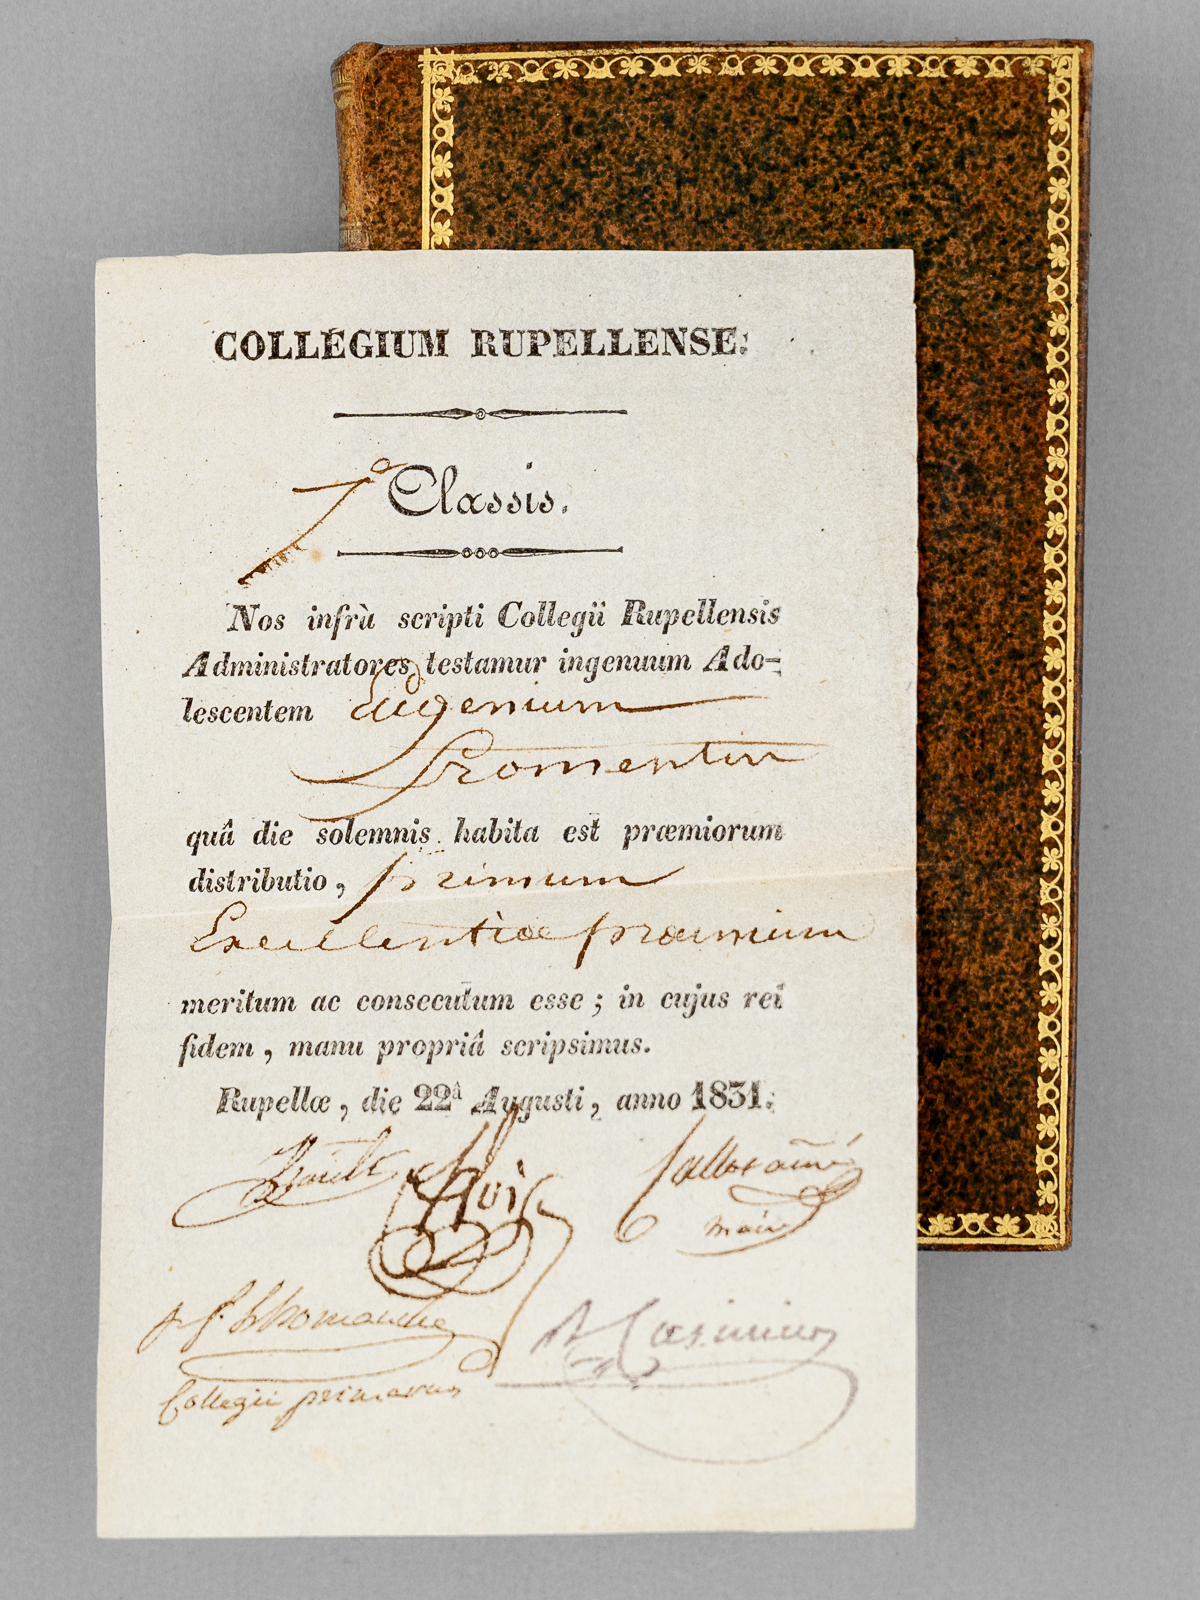 COLLEGIUM RUPELLENSE.
7ª Classis.
Nos infrà scripti Collegii Rupellensis
Administratores testamur ingenuum Ado-
lescentem Eugenium
Fromentin
quâ die solemnis habita est præmiorum
distributio, primum
Excellentiæ præmium
meritum ac consecutum esse ; in cujus rei
fidem, manu propriâ scripsimus.
Rupellæ, die 22â Augusti, anno 1831.
Callot aîné
maire
Collegii primarius